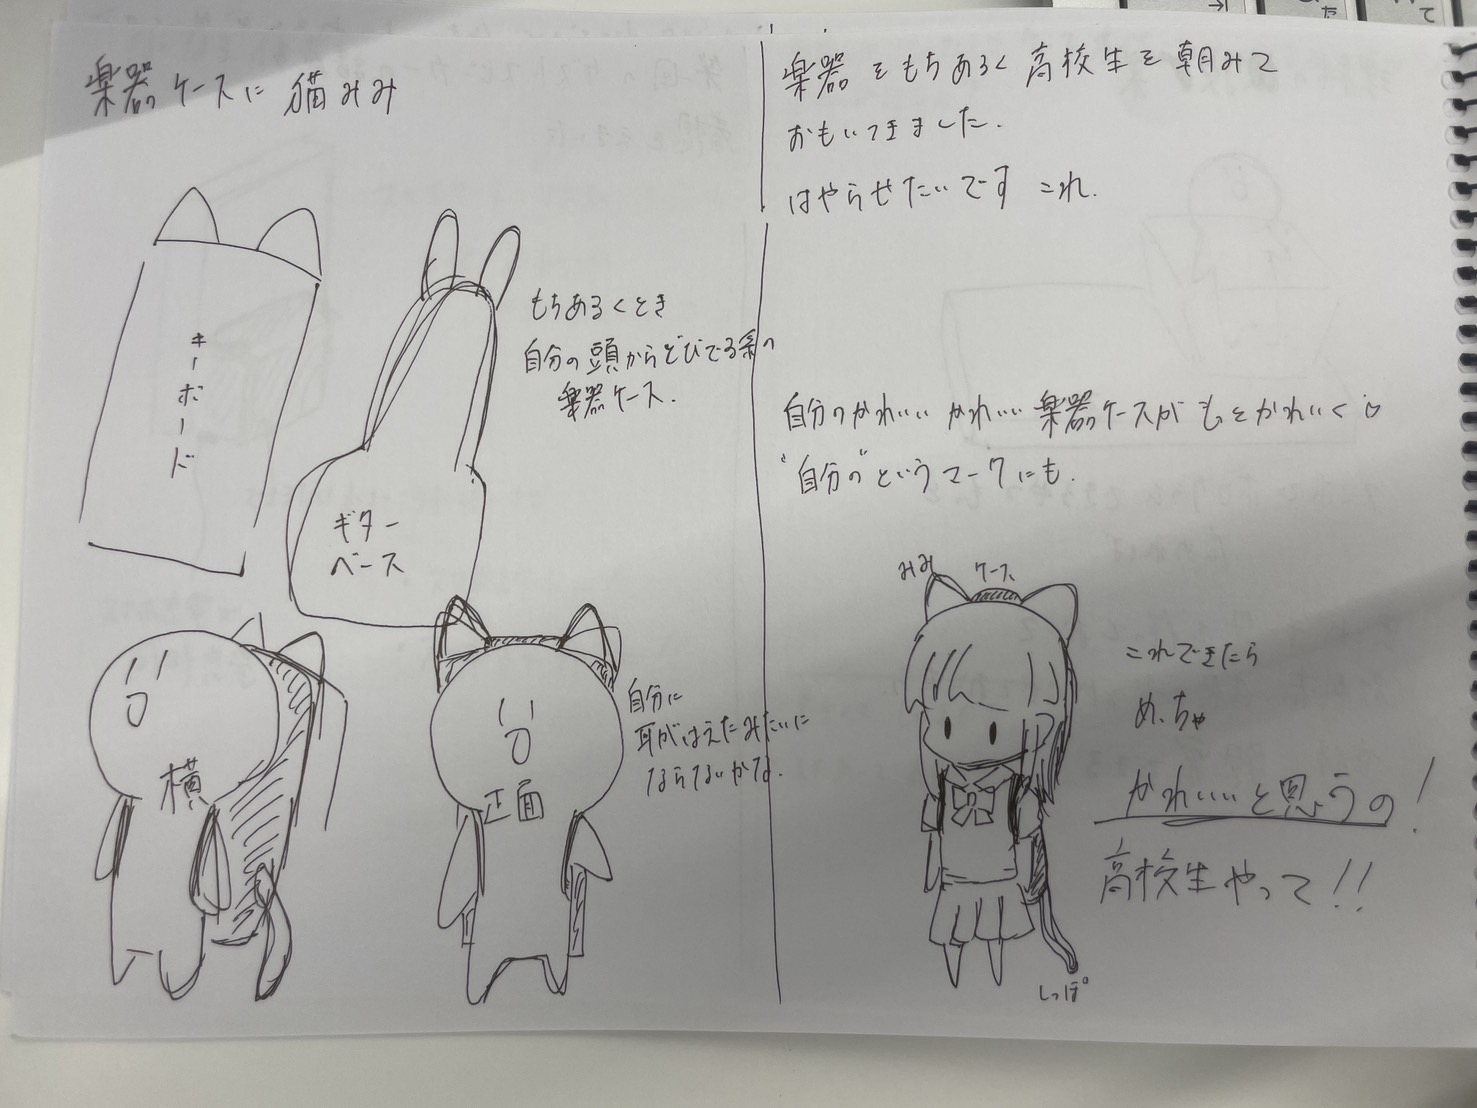 楽器ケースに猫みみ
キーボード
ギター
ベース
もちあるくとき
自分の頭からとびでる系の
楽器ケース.
横
正面
自分に
耳がはえたみたいに
ならないかな.
楽器をもちあるく高校生を朝みて
おもいつきました.
はやらせたいです これ.
自分のかわいい かわいい楽器ケースがもっとかわいく♡
"自分の"というマークにも.
みみ
ケース
しっぽ
これできたら
めっちゃ
かわいいと思うの!
高校生やって!!